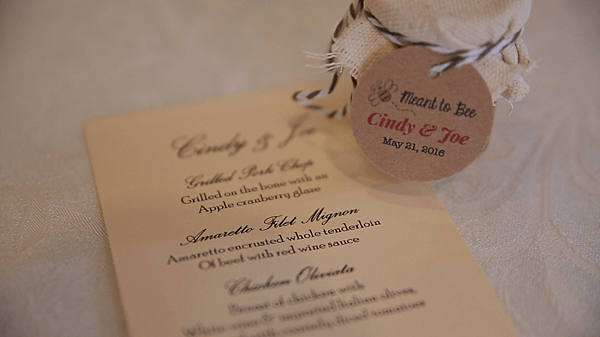 Meant to Bee
Cindy & Joe
May 21, 2016
Cindy & Joe
Grilled Pork Chop
Grilled on the bone with an
Apple cranberry glaze
Amaretto Filet Mignon
Amaretto encrusted whole tenderloin
Of beef with red wine sauce
Chicken Oliviata
Breast of chicken with
White wine & imported Italian olives,
tomatoes